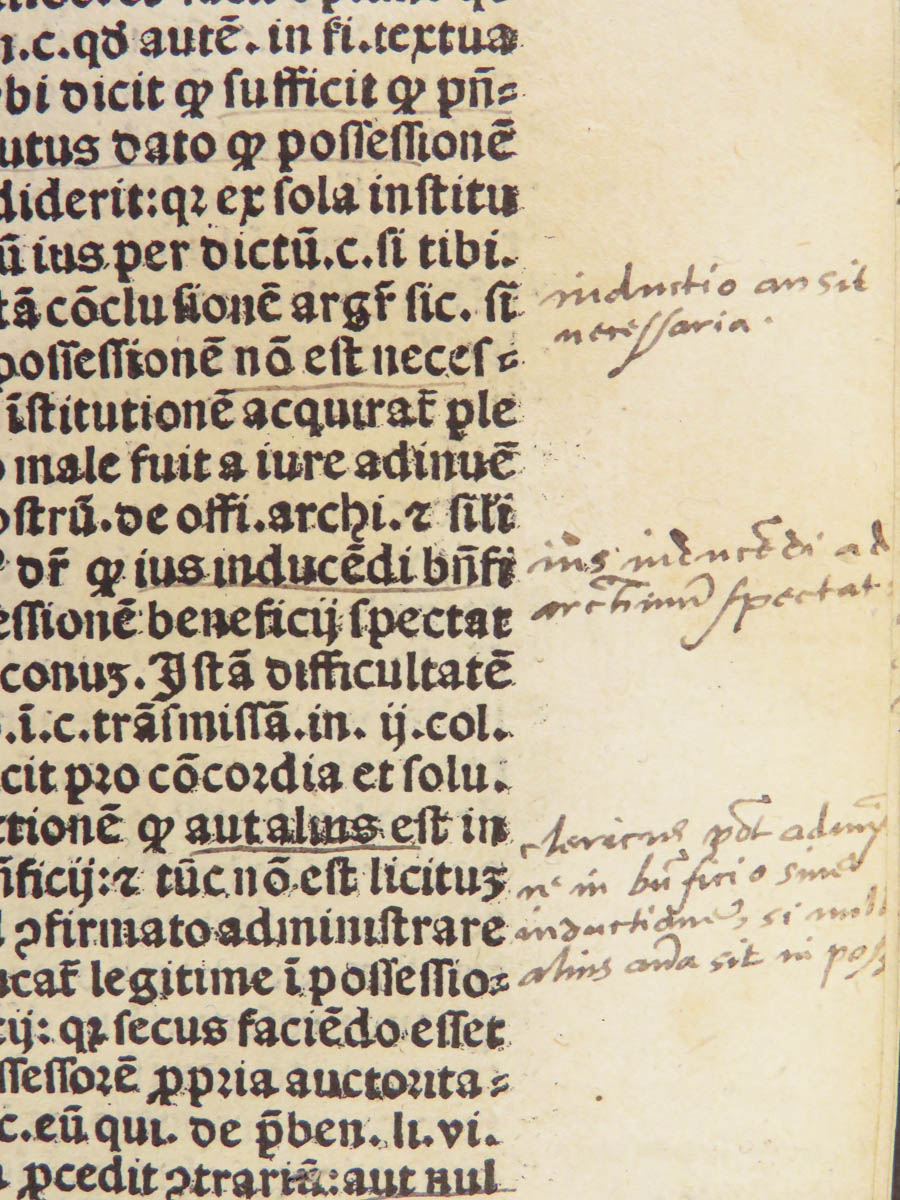 .c.qđ autē. in fi.textua
bi dicit ꝙ sufficit ꝙ pn̄⸗
utus dato ꝙ possessionē
diderit:qꝛ ex sola institu
ū ius per dictū.c.si tibi.
tā cōclusionē argr̄ sic. si
possessionē nō est neces⸗
īstitutionē acquirat̄ ple
male fuit a iure adinuē
ostrū.de offi.archi.⁊ sil'i
dr̄ ꝙ ius inducēdi bn̄fi
essionē beneficij spectat
conuꝫ. Istā difficultatē
.ī.c.trāsmissā.in. ij.col.
cit pro cōcordia et solu.
ctionē ꝙ aut alius est in
n̄ficij:⁊ tūc nō est licituꝫ
ꝯfirmato administrare
cat̄ legitime ī possessio⸗
ij: qꝛ secus faciēdo esset
ssessorē ꝓpria auctorita⸗
c.eū qui. de p̄ben. li.vi.
ꝓcedit ꝯtrariū:aut nul
inductio an sit
necessaria.
ius inducēdi ad
spectat
clericus pōt
in bn̄ficio sine
inductione si
alius sit in